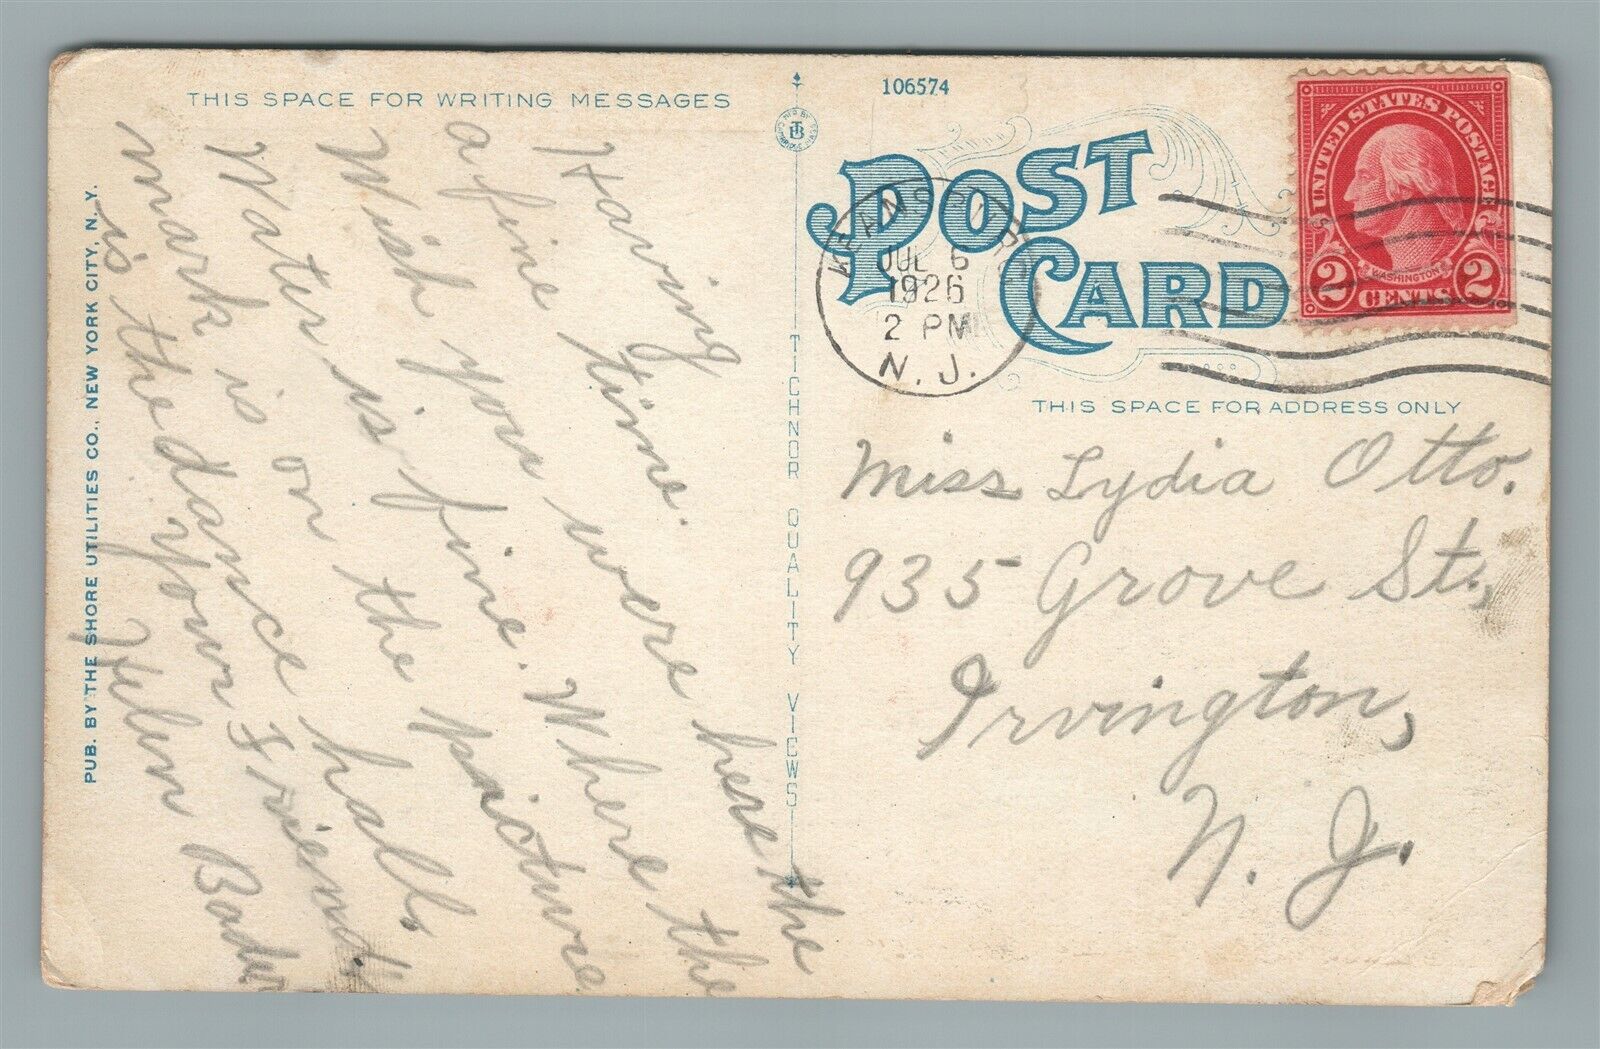 THIS SPACE FOR WRITING MESSAGES
106574
POST CARD
UNITED STATES POSTAGE
WASHINGTON
2 CENTS 2
KEANSBURG
JUL 6
1926
2 PM
N. J.
THIS SPACE FOR ADDRESS ONLY
Having
a fine time.
Wish you were here the
Water is fine. Where the
mark is on the picture
is the dance hall.
Your Friend
Helen Bader
Miss Lydia Otto.
935 Grove St.,
Irvington,
N. J.
TICHNOR QUALITY VIEWS
PUB. BY THE SHORE UTILITIES CO., NEW YORK CITY, N. Y.
MF'D BY
TB
CAMBRIDGE MASS